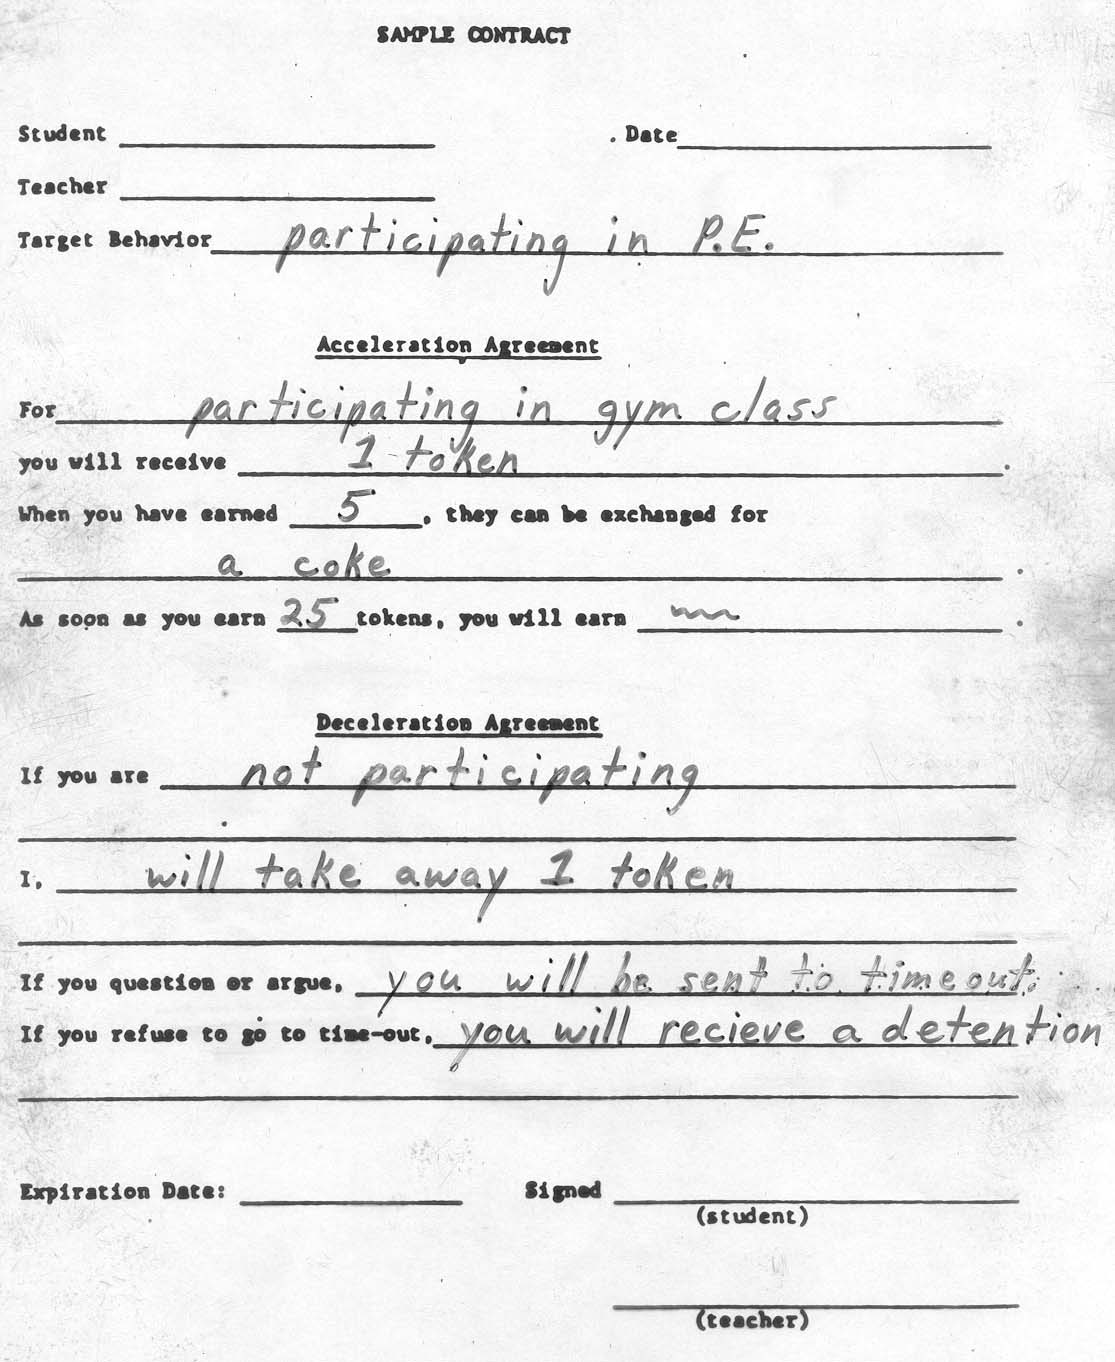 SAMPLE CONTRACT
Student Date
Teacher
Target Behavior participating in P.E.
Acceleration Agreement
For participating in gym class
you will receive 1 token.
When you have earned 5, they can be exchanged for
a coke.
As soon as you earn 25 tokens, you will earn .
Deceleration Agreement
If you are not participating
I, will take away 1 token
If you question or argue, you will be sent to timeout.
If you refuse to go to time-out, you will recieve a detention
Expiration Date: Signed
(student)
(teacher)